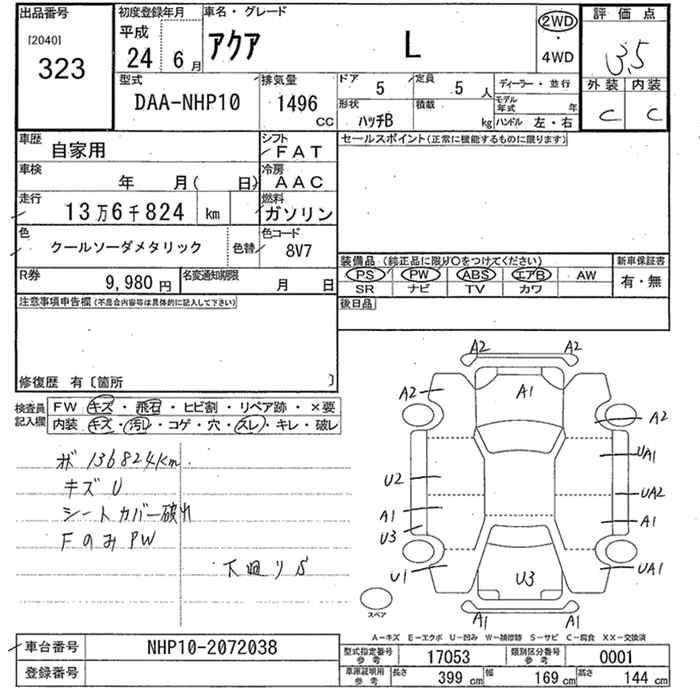 出品番号
[2040]
323
初度登録年月
平成
24 6月
車名・グレード
アクア L
2WD
・
4WD
評価点
3.5
外装 内装
C C
型式
DAA-NHP10
排気量
1496
CC
ドア
5
定員
5 人
形状
ハッチB
積載
kg
ディーラー・並行
モデル年式 年
ハンドル 左・右
車歴
自家用
シフト
FAT
車検
年 月( 日)
冷房
AAC
走行
13万6千824 km
燃料
ガソリン
色
クールソーダメタリック
色替
色コード
8V7
R券
9,980円
名変通知期限
月 日
セールスポイント(正常に機能するものに限ります)
装備品(純正品に限り○をつけてください)
PS PW ABS エアB AW
SR ナビ TV カワ
新車保証書
有・無
後日品
注意事項申告欄(不具合内容等は具体的に記入して下さい)
修復歴 有〔箇所 〕
検査員記入欄
FW キズ・飛石・ヒビ割・リペア跡・×要
内装 キズ・汚レ・コゲ・穴・スレ・キレ・破レ
ボ 136824km
キズ U
シートカバー破れ
FのみPW
下廻りS
A2 A2
A2 A1 A2
UA1
U2 UA2
A1 A1
U3
U1 U3 UA1
A1 A1
スペア
A-キズ E-エクボ U-凹み W-補修跡 S-サビ C-腐食 XX-交換済
車台番号
NHP10-2072038
登録番号
型式指定番号
参考
17053
類別区分番号
参考
0001
車庫証明用
参考
長さ
399 cm
幅
169 cm
高さ
144 cm